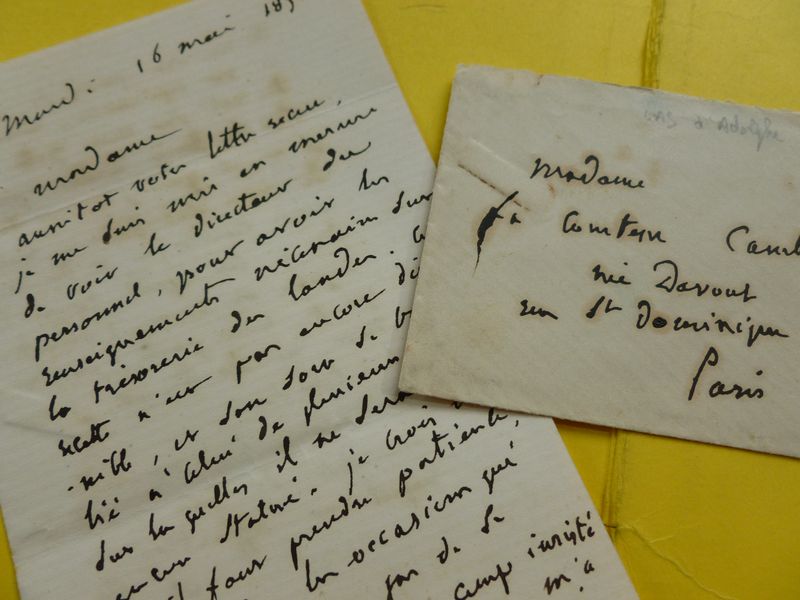 Mardi 16 mai 18
Madame
aussitot votre lettre recue,
je me suis mis en mesure
de voir le directeur du
personnel, pour avoir les
renseignements nécessaires sur
la trésorerie des Landes.
recette n'est pas encore
nible, et son sort se
lié a celui de plusieurs
sur lesquelles il ne sera
aucun statué. je crois
faut prendre patience,
les occasions qui
pas de se
insisté
m'a
Madame
La Comtesse
née Davout
rue St Dominique
Paris